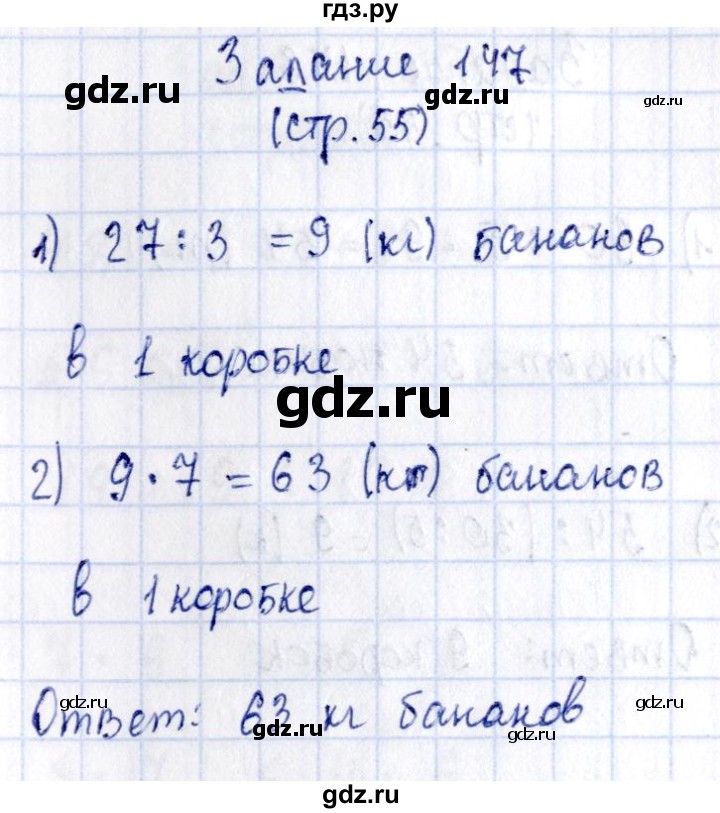 гдз.ру
Задание 147
gdz.ru gdz.ru gdz.ru
(стр. 55)
1) 27 : 3 = 9 (кг) бананов
в 1 коробке
gdz.ru
2) 9 · 7 = 63 (кг) бананов
в 1 коробке
gdz.ru
Ответ: 63 кг бананов
gdz.ru gdz.ru
gdz.ru